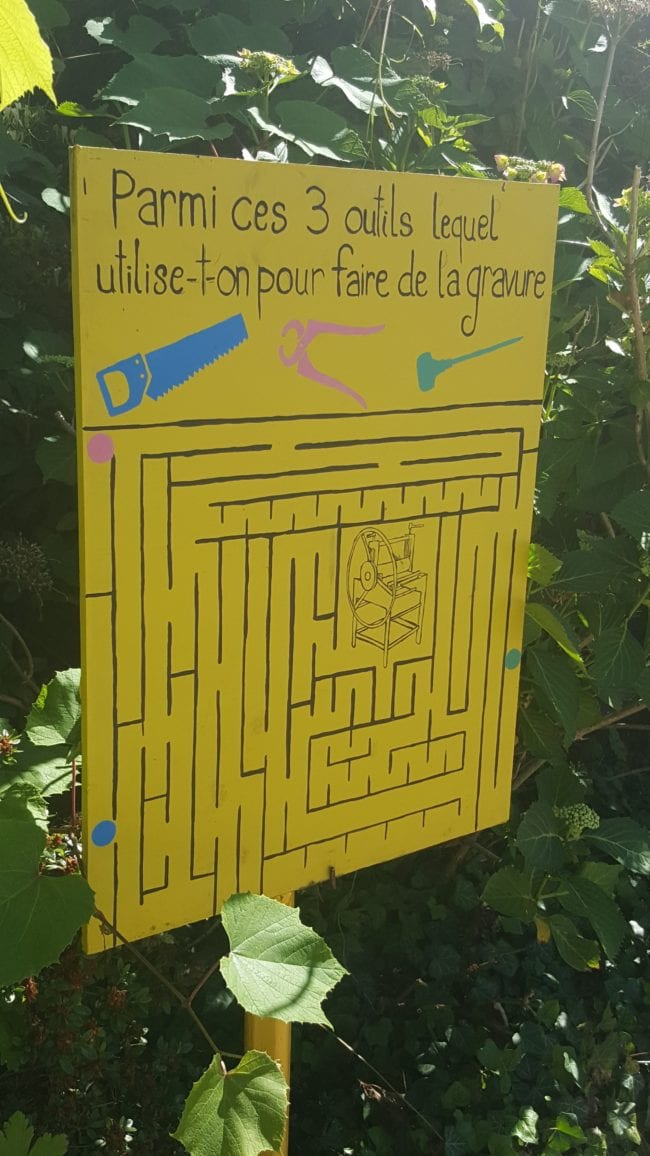 Parmi ces 3 outils lequel
utilise-t-on pour faire de la gravure